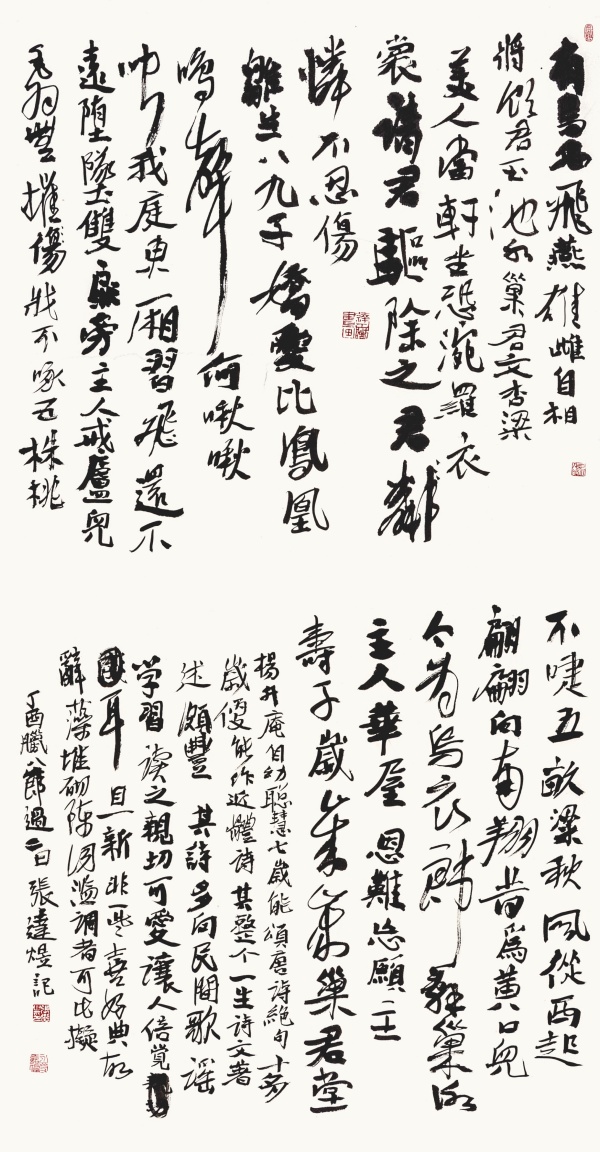 有鳥名飛燕雄雌自相
將顧君玉池水巢君文杏梁
美人當軒坐恐瀧羅衣
裳謂君驅除之君
憐不忍傷
雛生八九子嬌愛比鳳凰
鳴聲何啾啾
我庭東廂習飛還不
遠墮墜雙泉旁主人戒廬兒
毛羽豐摧傷戕不啄五株桃
不啑五畝粱秋風從西起
翩翩向南翔昔為黃口兒
今為烏衣郎辭巢謝
主人華屋恩難忘願主
壽千歲年年巢君堂
楊升庵自幼聰慧七歲能頌唐詩絕句十多
歲便能作近體詩其整个一生詩文著
述頗豐其詩多向民間歌謠
学習讀之親切可愛讓人倍覺
耳目一新非一些喜好典故
辭藻堆砌陳詞濫調者可比擬
丁酉臘八節過二日張達煜記